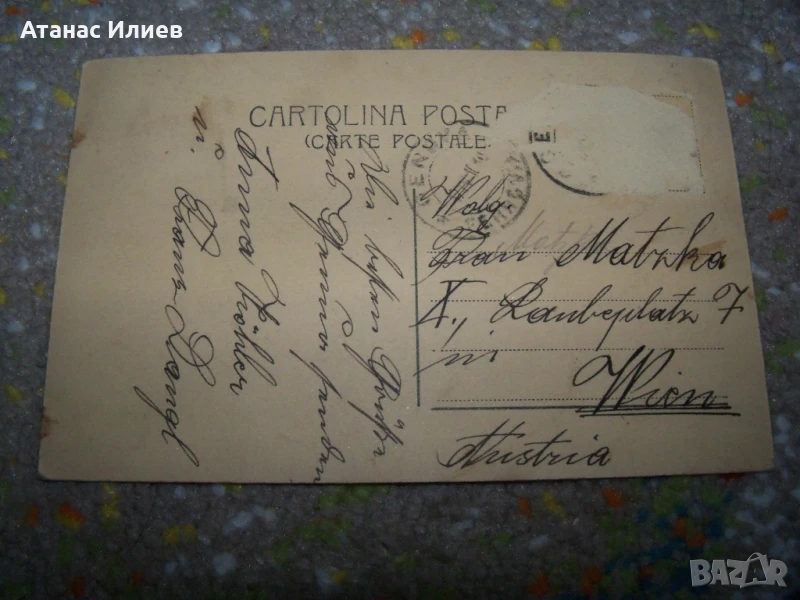 Атанас Илиев
CARTOLINA POSTA
(CARTE POSTALE.
Die besten Grüße
von Genua senden
Anna Köhler
u. Franz Dangl
Wolg
Frau Matzka
X., Laubeplatz 7
in
Wien
Austria
BAZAR